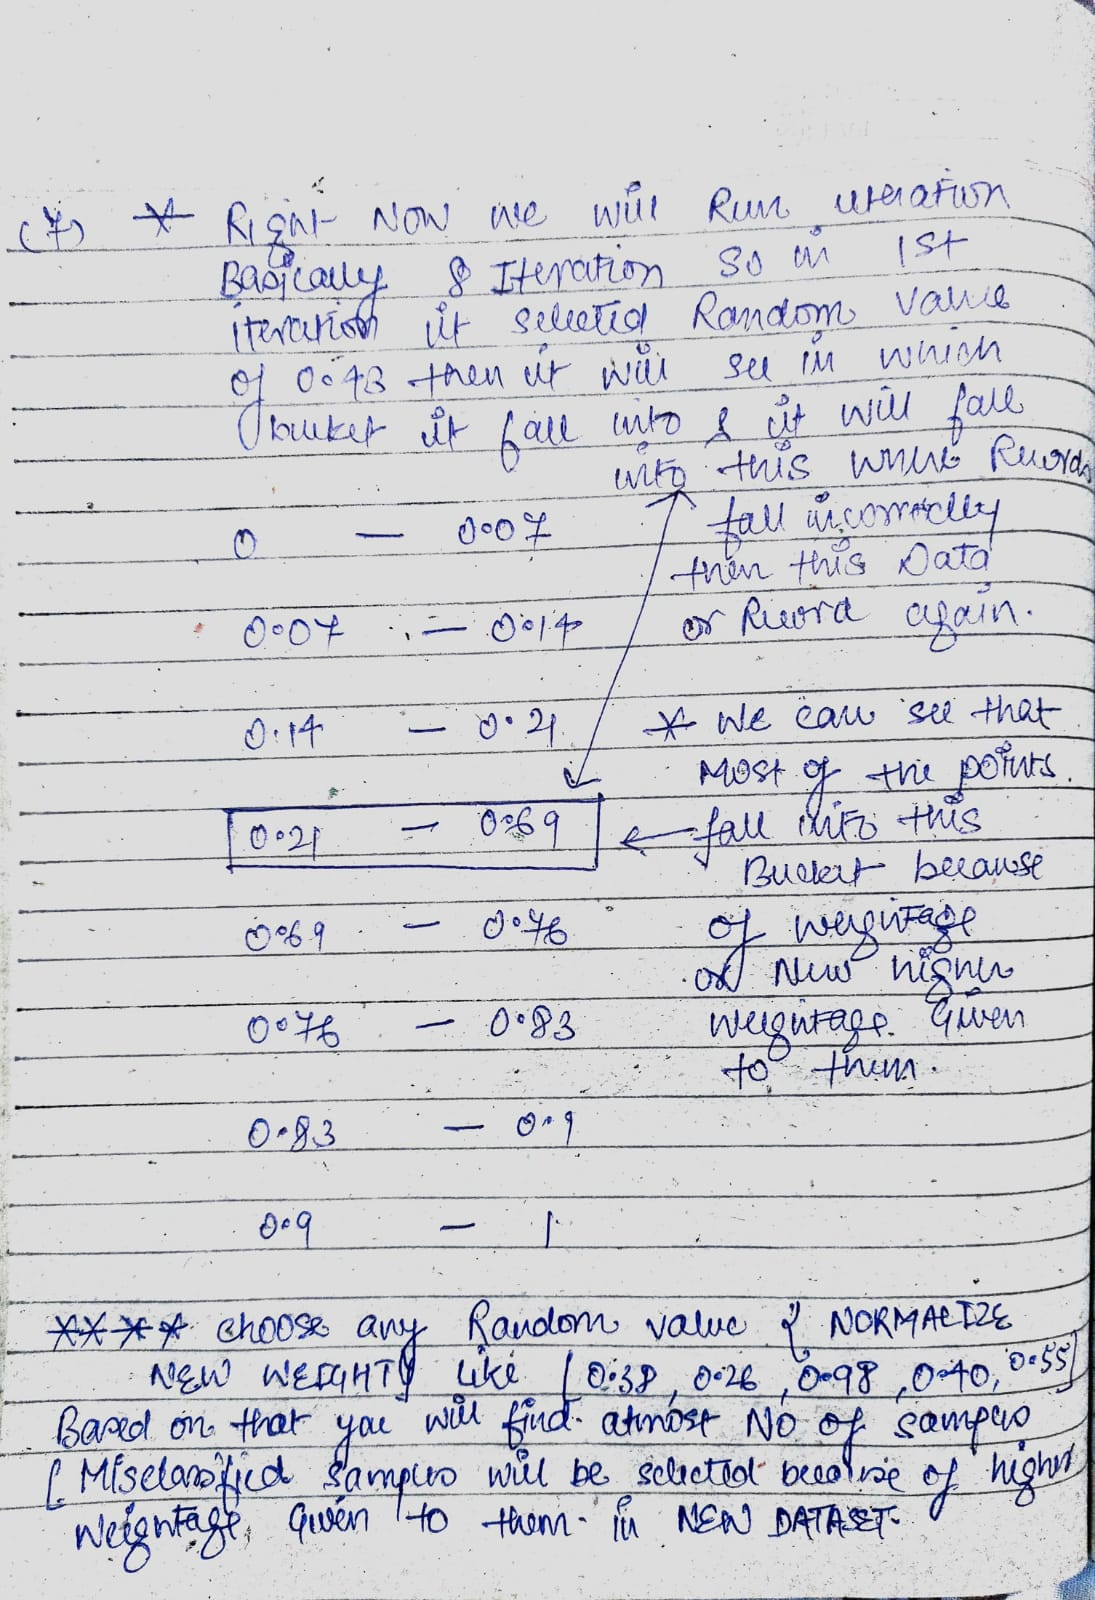 (7) * Right Now we will Run iteration
Basically 8 Iteration so in 1st
iteration it selected Random value
of 0.43 then it will see in which
bucket it fall into & it will fall
into this where Records
0 - 0.07 fall incorrectly
then this Data
0.07 - 0.14 or Record again.
0.14 - 0.21 * We can see that
Most of the points
0.21 - 0.69 ← fall into this
Bucket because
0.69 - 0.76 of weightage
or New higher
0.76 - 0.83 weightage Given
to them.
0.83 - 0.9
0.9 - 1
**** choose any Random value & NORMALIZE
NEW WEIGHTS like [0.38, 0.26, 0.98, 0.40, 0.55]
Based on that you will find atmost NO of samples
[Misclassified samples will be selected because of higher
weightage Given to them in NEW DATASET.